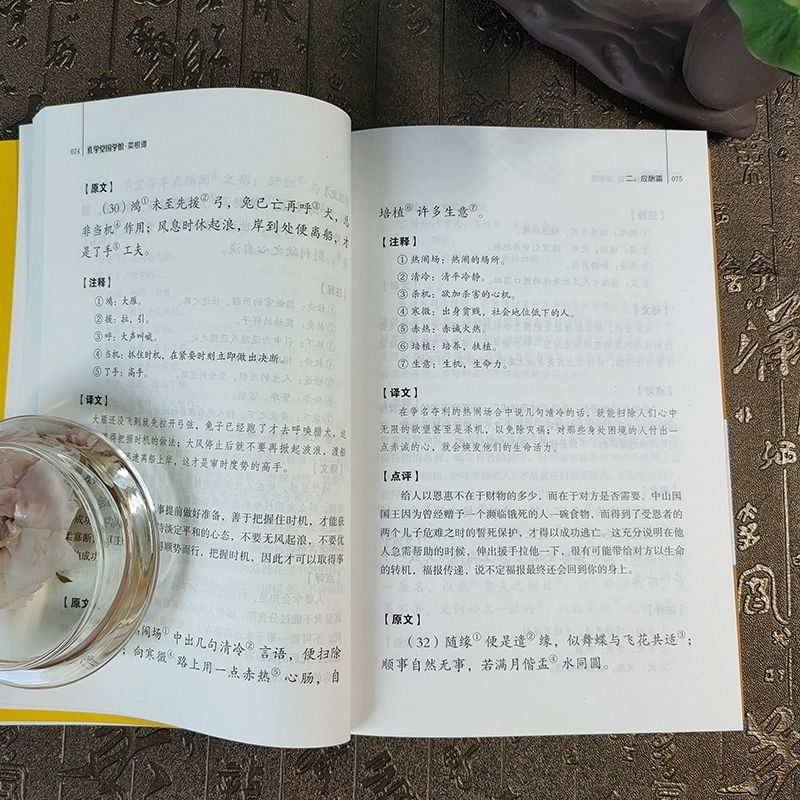 074 孔学堂国学馆·菜根谭
【原文】
(30)鸿①未至先援②弓,兔已亡再呼③犬,总
非当机④作用;风息时休起浪,岸到处便离船,才
是了手⑤工夫。
【注释】
①鸿:大雁。
②援:拉,引。
③呼:大声叫喊。
④当机:抓住时机,在紧要时刻立即做出决断。
⑤了手:高手。
【译文】
大雁还没飞到就先拉开弓弦,兔子已经跑了才去呼唤猎犬,这
得把握时机的做法;大风停止后就不要再掀起波浪,渡船
迅速离船上岸,这才是审时度势的高手。
事提前做好准备,善于把握住时机,才能获
持淡定平和的心态,不要无风起浪,不要优
柔寡断
顺势而行,把握时机,因此才可以取得事
成功
【原文
热闹场①中出几句清冷②言语,便扫除
;向寒微④路上用一点赤热⑤心肠,自
二、应酬篇 075
培植⑥许多生意⑦。
【注释】
①热闹场:热闹的场所。
②清冷:清平冷静。
③杀机:欲加杀害的心机。
④寒微:出身贫贱,社会地位低下的人。
⑤赤热:赤诚火热。
⑥培植:培养,扶植。
⑦生意:生机,生命力。
【译文】
在争名夺利的热闹场合中说几句清冷的话,就能扫除人们心中
无限的欲望甚至是杀机,以免除灾祸;对那些身处困境的人付出一
点赤诚的心,就会焕发他们的生命活力。
【点评】
给人以恩惠不在于财物的多少,而在于对方是否需要。中山国
国王因为曾经赠予一个濒临饿死的人一碗食物,而得到了受恩者的
两个儿子危难之时的誓死保护,才得以成功逃亡。这充分说明在他
人急需帮助的时候,伸出援手拉他一下,很有可能带给对方以生命
的转机,福报传递,说不定福报最终还会回到你的身上。
【原文】
(32)随缘①便是遣②缘,似舞蝶与飞花共适③;
顺事自然无事,若满月偕盂④水同圆。